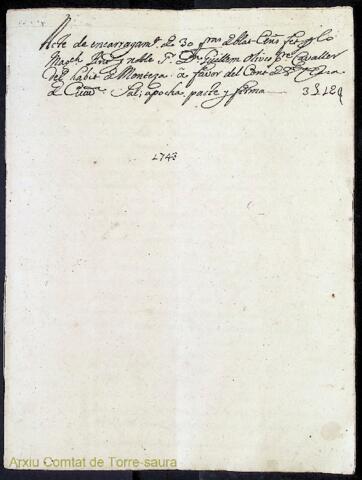 Acte de encarragamt. de 30 qras. de blat Cens fet p lo
Magch. y noble Sr. Dn. Guillem Olives Cavaller
del habit de Monteza â favor del Cont. de Sta. Clara
de Ciuta. Sal: apocha, pacte y firma 3 § 12
1743
Arxiu Comtat de Torre-saura